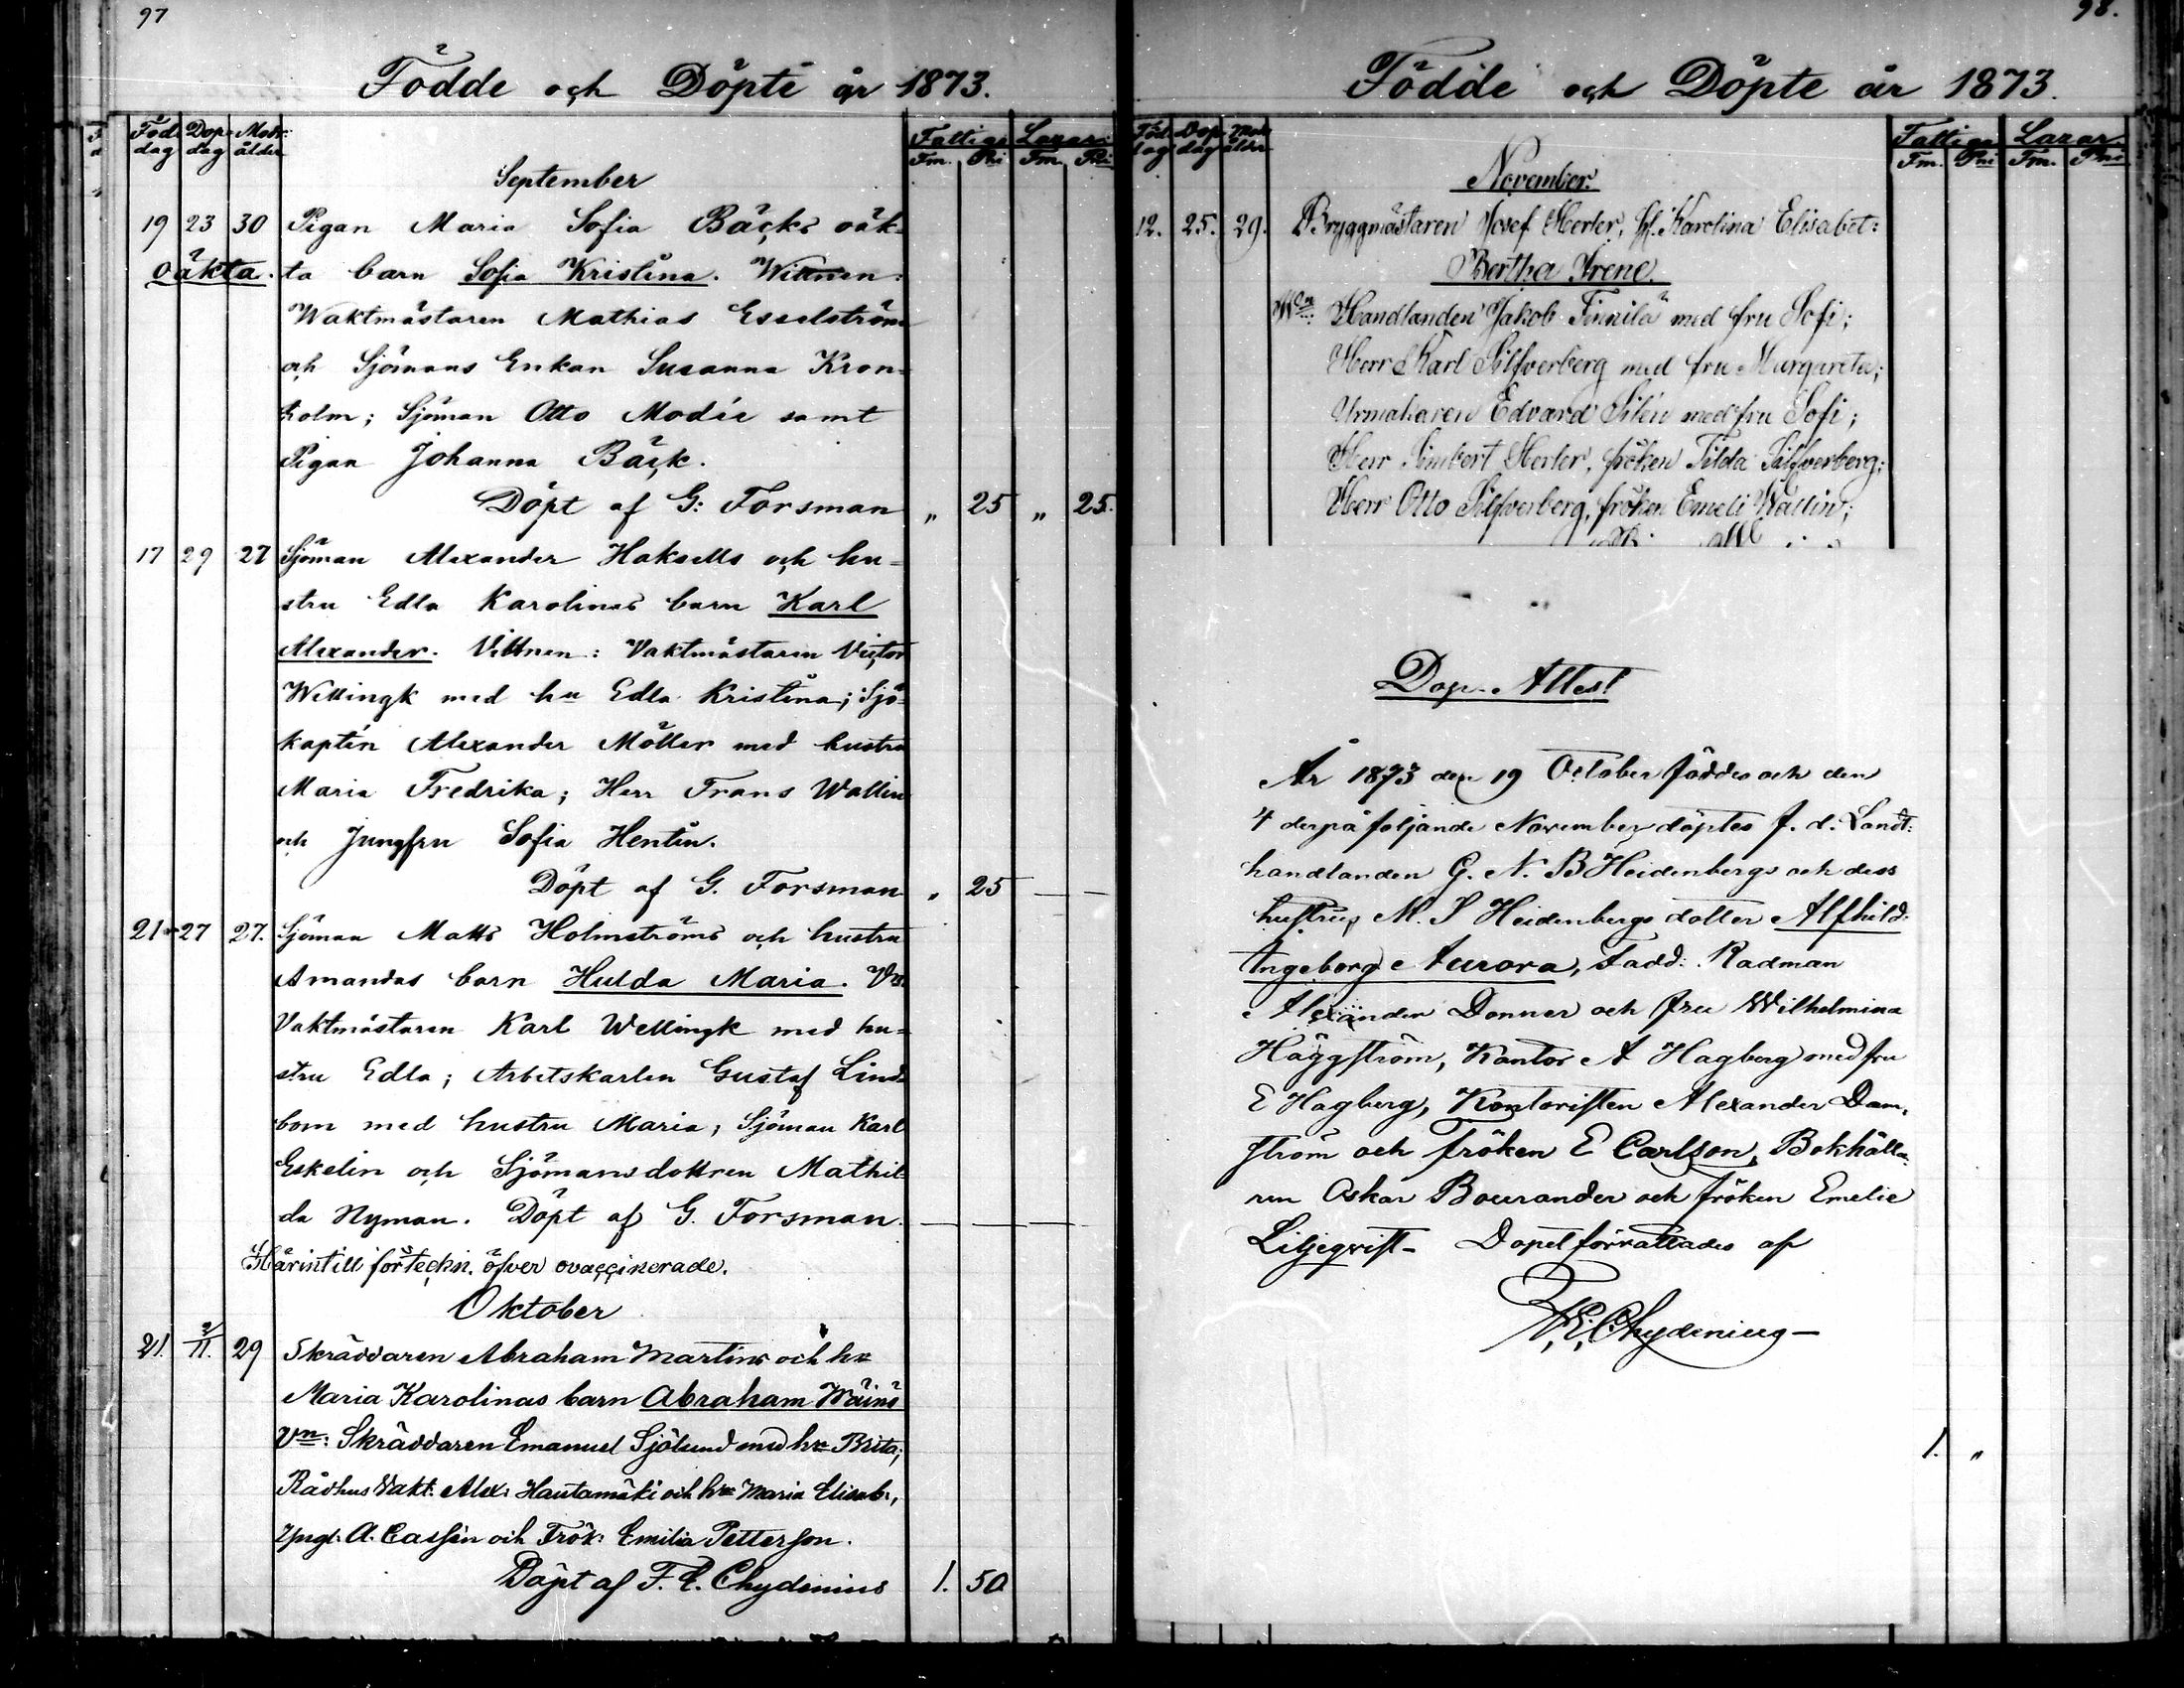 97
Födde och Döpte år 1873.
Föd. dag Dop dag Mod: ålder Fattiga Fm. Pni Lazar: Fm. Pni
September
19 23 30 Pigan Maria Sofia Bäcks oäk-
oäkta. ta barn Sofia Kristina. Wittnen:
Waktmästaren Mathias Esselström
och Sjömans Enkan Susanna Kron-
holm; Sjöman Otto Modée samt
Pigan Johanna Bäck.
Döpt af G: Forsman „ 25 „ 25.
17 29 27 Sjöman Alexander Haksells och hu-
stru Edla Karolinas barn Karl
Alexander. Vittnen: Vaktmästaren Victor
Wellingk med hu Edla Kristina; Sjö-
kaptén Alexander Möller med hustru
Maria Fredrika; Herr Frans Wallin
och Jungfru Sofia Hentin.
Döpt af G. Forsman „ 25 — —
21 27 27. Sjöman Matts Holmströms och hustru
Amandas barn Hulda Maria. Vn.
Vaktmästaren Karl Wellingk med hu-
stru Edla; Arbetskarlen Gustaf Lind-
bom med hustru Maria; Sjöman Karl
Eskelin och Sjömansdottren Mathil-
da Nyman. Döpt af G. Forsman. — — — —
Härintill förteckn. öfver ovaccinerade.
Oktober
21. 2/11. 29 Skräddaren Abraham Martins och hu
Maria Karolinas barn Abraham Wäinö
Vn: Skräddaren Emanuel Sjölund med hu Brita;
Rådhus Vakt: Alex: Hautamäki och hu Maria Elisab:,
Yngl: A. Cassén och Frök: Emilia Petterson.
Döpt af F. E. Chydenius 1. 50
98.
Födde och Döpte år 1873.
Föd. dag Dop dag Mod ålder Fattiga Fm. Pni Lazar. Fm. Pni
November.
12. 25. 29. Bryggmästaren Josef Herler, h. Karolina Elisabet:
Bertha Irene.
Wn: Handlanden Jakob Finnilä med fru Sofi;
Herr Karl Silfverberg med fru Margareta;
Urmakaren Edvard Silén med fru Sofi;
Herr Herler, fröken Tilda Silfverberg;
Herr Otto Silfverberg, fröken Emeli Wallin;
Dop-Attest
År 1873 den 19 October föddes och den
4 derpå följande November döptes f. d. Landt:
handlanden G. N. B Heidenbergs och dess
hustrus M. S Heidenbergs dotter Alfhild
Ingeborg Aurora, Fadd: Radman
Alexander Donner och fru Wilhelmina
Häggström, Kantor A Hagberg med fru
E Hagberg, Kontoristen Alexander Dam,
ström och fröken E Carlson, Bokhålla
ren Oskar Bourander och fröken Emelie
Liljeqvist - Dopet förrättades af
F. E. Chydenius —
1. „